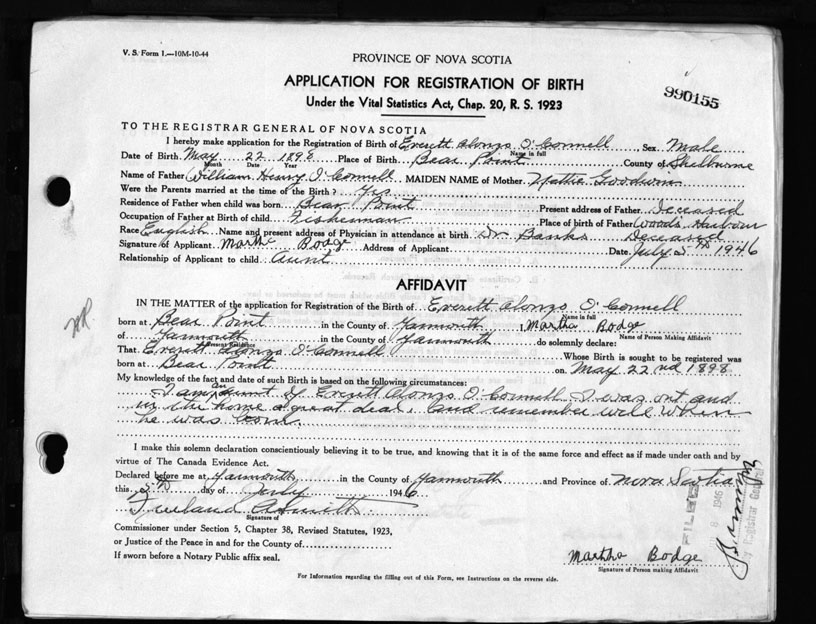 V. S. Form 1.—10M-10-44
PROVINCE OF NOVA SCOTIA
APPLICATION FOR REGISTRATION OF BIRTH
Under the Vital Statistics Act, Chap. 20, R. S. 1923
990155
TO THE REGISTRAR GENERAL OF NOVA SCOTIA
I hereby make application for the Registration of Birth of Everett Alonzo O'Connell Sex Male
Name in full
Date of Birth May 22 1898 Place of Birth Bear Point County of Shelburne
Month Date Year
Name of Father William Henry O'Connell MAIDEN NAME of Mother Hattie Goodwin
Were the Parents married at the time of the Birth? Yes
Residence of Father when child was born Bear Point Present address of Father Deceased
Occupation of Father at Birth of child Fisherman Place of birth of Father Woods Harbour
Race English Name and present address of Physician in attendance at birth Dr Banks Deceased
Signature of Applicant Martha Bodge Address of Applicant Date July 5th 1946
Relationship of Applicant to child Aunt
AFFIDAVIT
IN THE MATTER of the application for Registration of the Birth of Everett Alonzo O'Connell
Name in full
born at Bear Point in the County of Yarmouth I, Martha Bodge
Name of Person Making Affidavit
of Yarmouth in the County of Yarmouth do solemnly declare:
Present Residence
That Everett Alonzo O'Connell Whose Birth is sought to be registered was
born at Bear Point on May 22nd 1898
My knowledge of the fact and date of such Birth is based on the following circumstances:
I am an aunt of Everett Alonzo O'Connell I was out and
in the home a great deal, and remember well when
he was born.
I make this solemn declaration conscientiously believing it to be true, and knowing that it is of the same force and effect as if made under oath and by
virtue of The Canada Evidence Act.
Declared before me at Yarmouth in the County of Yarmouth and Province of Nova Scotia
this 5th day of July 1946
Signature of
Commissioner under Section 5, Chapter 38, Revised Statutes, 1923,
or Justice of the Peace in and for the County of
If sworn before a Notary Public affix seal.
Martha Bodge
Signature of Person making Affidavit
For Information regarding the filling out of this Form, see Instructions on the reverse side.
FILED
1946
Registrar General